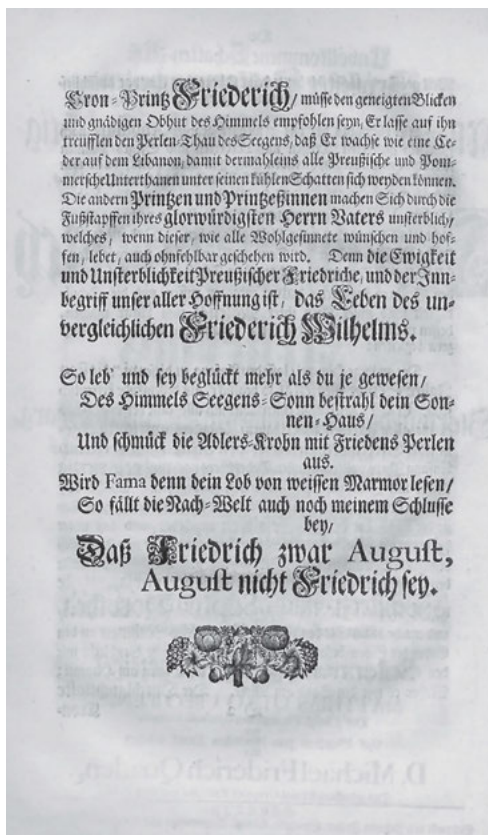 Cron-Printz Friederich/ müsse den geneigten Blicken
und gnädigen Obhut des Himmels empfohlen seyn, Er lasse auf ihn
treufflen den Perlen-Thau des Seegens, daß Er wachse wie eine Ce-
der auf dem Libanon, damit dermahleins alle Preußische und Pom-
mersche Unterthanen unter seinen kühlen Schatten sich weyden können.
Die andern Printzen und Printzeßinnen machen Sich durch die
Fußstapffen ihres glorwürdigsten Herrn Vaters unsterblich/
welches, wenn dieser, wie alle Wohlgesinnete wünschen und hof-
fen, lebet, auch ohnfehlbar geschehen wird. Denn die Ewigkeit
und Unsterblichkeit Preußischer Friedriche, und der Inn-
begriff unser aller Hoffnung ist, das Leben des un-
vergleichlichen Friederich Wilhelms.
So leb' und sey beglückt mehr als du je gewesen/
Des Himmels Seegens-Sonn bestrahl dein Son-
nen-Haus/
Und schmück die Adlers-Krohn mit Friedens Perlen
aus.
Wird Fama denn dein Lob von weissen Marmor lesen/
So fällt die Nach-Welt auch noch meinem Schlusse
bey/
Daß Friedrich zwar August,
August nicht Friedrich sey.
D. Michael Friderich Quaden,